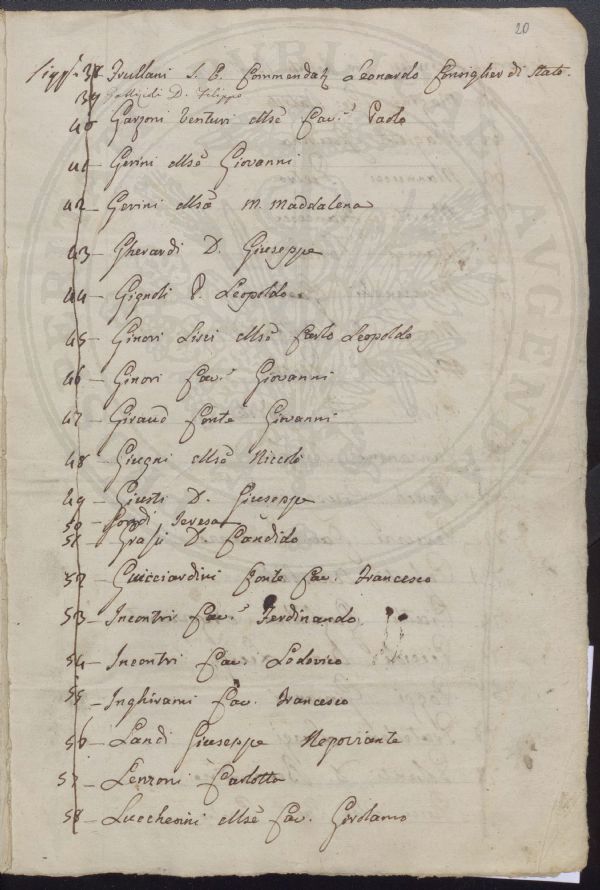 20
Sigg.ri 38 Frullani S. E. Commendat.e Leonardo Consiglier di Stato.
39 D. Filippo
40 Garzoni Venturi Mse Cav.e Paolo
41 - Gerini Mse Giovanni
42 - Gerini Msa M. Maddalena
43 - Gherardi D. Giuseppe
44 - Gignoli Leopoldo
45 - Ginori Lisci Mse Carlo Leopoldo
46 - Ginori Cav.e Giovanni
47 - Giraud Conte Giovanni
48 - Giugni Mse Niccolò
49 - Giusti D. Giuseppe
50 - Teresa
51 - Grassi D. Candido
52 - Guicciardini Conte Cav. Francesco
53 - Incontri Cav.e Ferdinando
54 - Incontri Cav. Lodovico
55 - Inghirami Cav. Francesco
56 - Landi Giuseppe Negoziante
57 - Lenzoni Carlotta
58 - Lucchesini Mse Cav. Girolamo